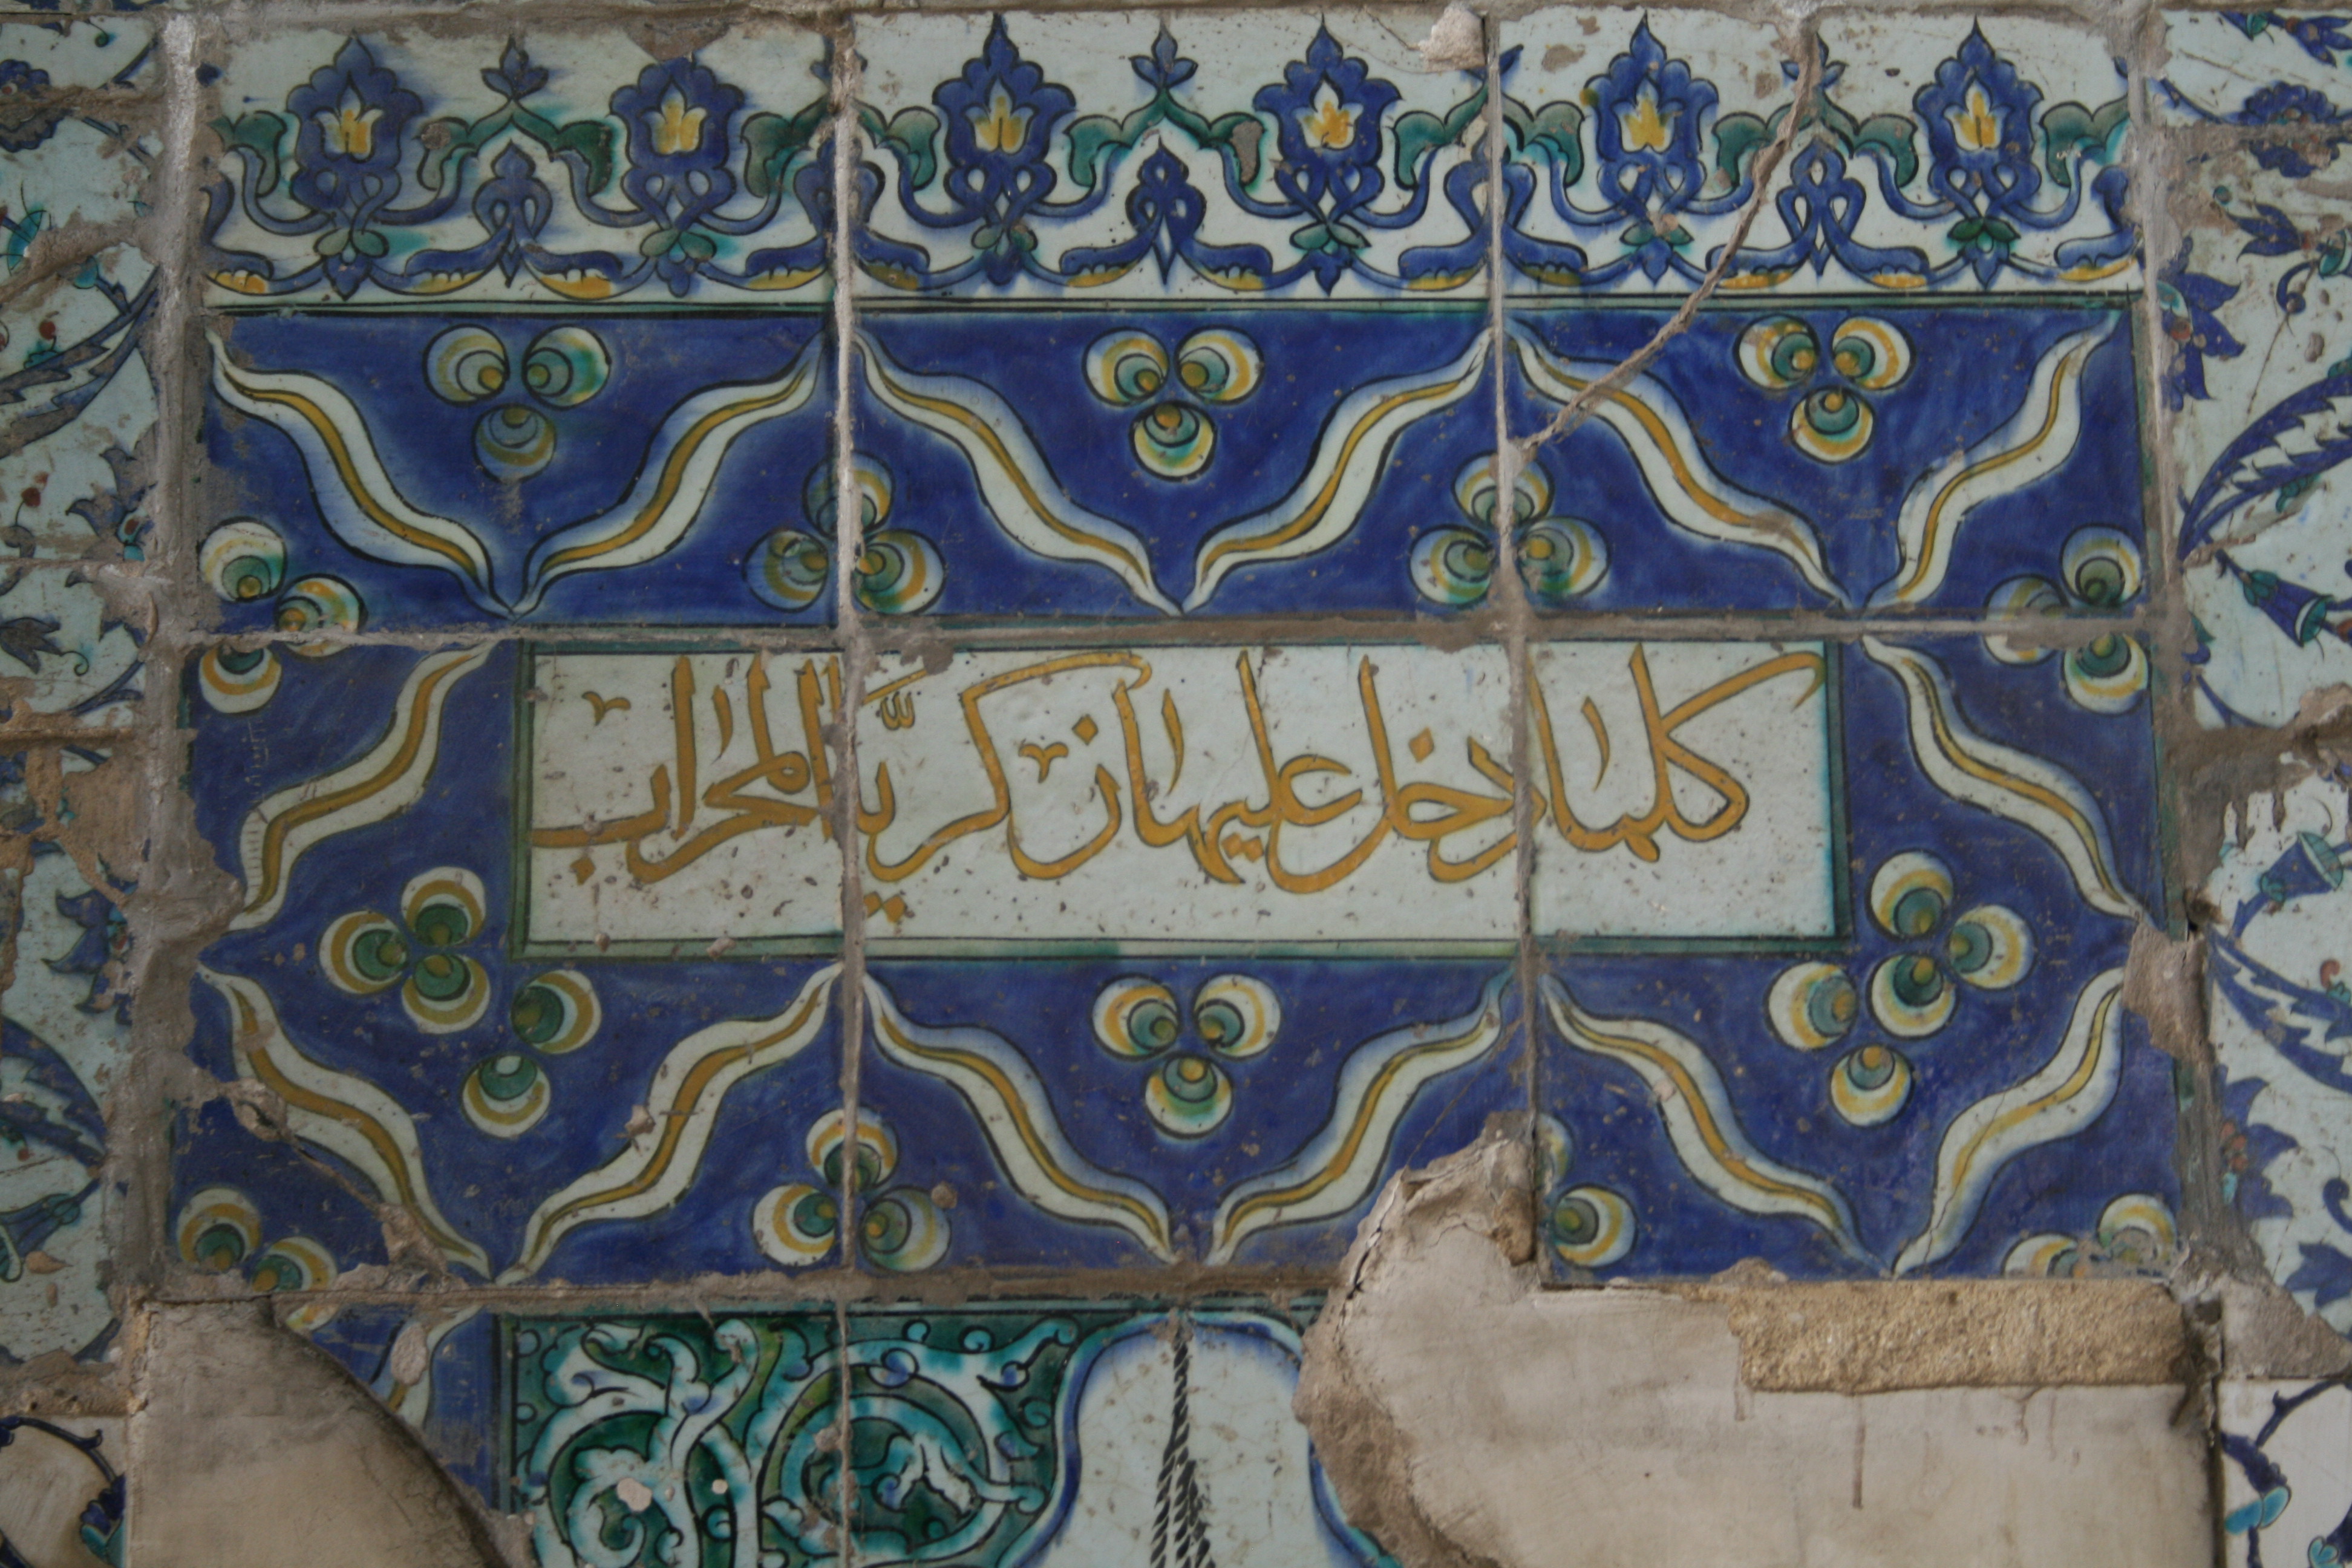 كلما دخل عليها زكريّا المحراب